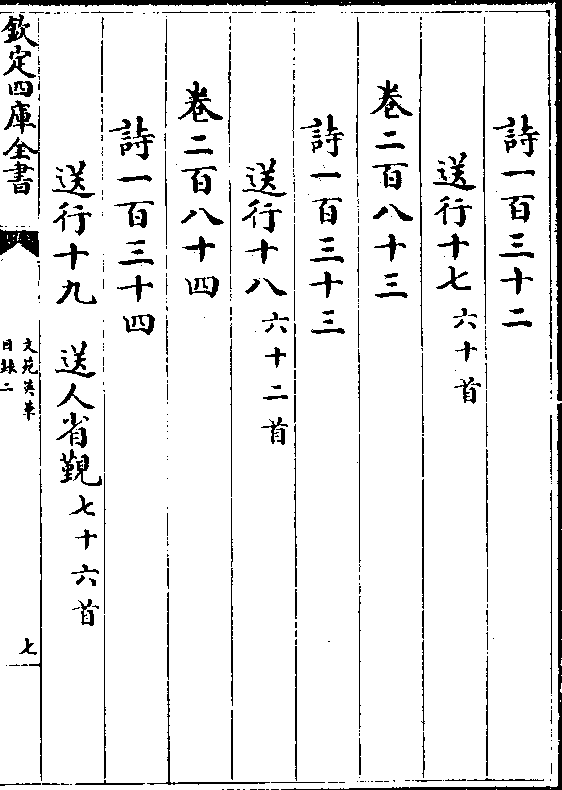 詩一百三十二
送行十七六十首
卷二百八十三
詩一百三十三
送行十八六十二首
卷二百八十四
詩一百三十四
送行十九 送人省覲七十六首
欽定四庫全書
文苑英華
目録二
七